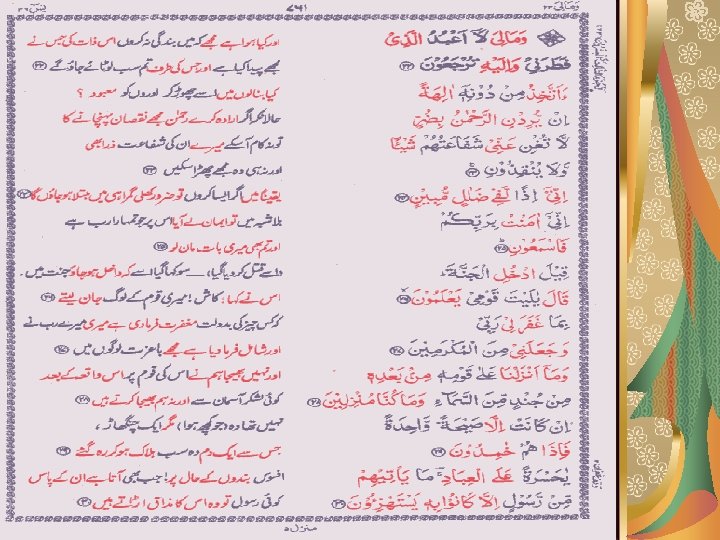 وَمَالِيَ ٢٣
٧٦١
يٰسٓ ٣٦
وَمَالِيَ لَاۤ اَعْبُدُ الَّذِيْ
اور کیا ہوا ہے مجھے کہ میں بندگی نہ کروں اس ذات کی جس نے
فَطَرَنِيْ وَاِلَيْهِ تُرْجَعُوْنَ ﴿٢٢﴾
مجھے پیدا کیا ہے اور جس کی طرف تم سب لوٹائے جاؤ گے ﴿٢٢﴾
ءَاَتَّخِذُ مِنْ دُوْنِهٖۤ اٰلِهَةً
کیا بنا لوں میں اسے چھوڑ کر اوروں کو معبود ؟
اِنْ يُّرِدْنِ الرَّحْمٰنُ بِضُرٍّ
حالانکہ اگر ارادہ کرے رحمٰن مجھے نقصان پہنچانے کا
لَّا تُغْنِ عَنِّيْ شَفَاعَتُهُمْ شَيْـًٔا
تو نہ کام آسکے میرے ان کی شفاعت ذرا بھی
وَّلَا يُنْقِذُوْنِ ﴿٢٣﴾
اور نہ ہی وہ مجھے چھڑا سکیں ﴿٢٣﴾
اِنِّيْۤ اِذًا لَّفِيْ ضَلٰلٍ مُّبِيْنٍ ﴿٢٤﴾
یقیناً میں اگر ایسا کروں تو ضرور کھلی گمراہی میں مبتلا ہو جاؤں گا ﴿٢٤﴾
اِنِّيْۤ اٰمَنْتُ بِرَبِّكُمْ
بلاشبہ میں تو ایمان لے آیا اس پر جو تمہارا رب ہے
فَاسْمَعُوْنِ ﴿٢٥﴾
اور تم بھی میری بات مان لو ﴿٢٥﴾
قِيْلَ ادْخُلِ الْجَنَّةَ ؕ
(اسے قتل کر دیا گیا) سو کہا گیا اسے کہ داخل ہو جاؤ جنت میں۔
قَالَ يٰلَيْتَ قَوْمِيْ يَعْلَمُوْنَ ﴿٢٦﴾
اس نے کہا: کاش! میری قوم کے لوگ جان لیتے ﴿٢٦﴾
بِمَا غَفَرَ لِيْ رَبِّيْ
کہ کس چیز کی بدولت مغفرت فرما دی ہے میری میرے رب نے
وَجَعَلَنِيْ مِنَ الْمُكْرَمِيْنَ ﴿٢٧﴾
اور شامل فرما دیا ہے مجھے باعزت لوگوں میں ﴿٢٧﴾
وَمَاۤ اَنْزَلْنَا عَلٰى قَوْمِهٖ مِنْۢ بَعْدِهٖ
اور نہیں بھیجا ہم نے اس کی قوم پر اس واقعہ کے بعد
مِنْ جُنْدٍ مِّنَ السَّمَآءِ وَمَا كُنَّا مُنْزِلِيْنَ ﴿٢٨﴾
کوئی لشکر آسمان سے اور نہ ہم بھیجا کرتے ہیں ﴿٢٨﴾
اِنْ كَانَتْ اِلَّا صَيْحَةً وَّاحِدَةً
نہیں تھا وہ (جو کچھ ہوا) مگر ایک چنگھاڑ،
فَاِذَا هُمْ خٰمِدُوْنَ ﴿٢٩﴾
جس سے ایک دم وہ سب ہلاک ہو کر رہ گئے ﴿٢٩﴾
يٰحَسْرَةً عَلَى الْعِبَادِ ۚ مَا يَاْتِيْهِمْ
افسوس بندوں کے حال پر! جب بھی آتا ہے ان کے پاس
مِّنْ رَّسُوْلٍ اِلَّا كَانُوْا بِهٖ يَسْتَهْزِءُوْنَ ﴿٣٠﴾
کوئی رسول تو وہ اس کا مذاق اڑاتے ہیں ﴿٣٠﴾
منزل ٥